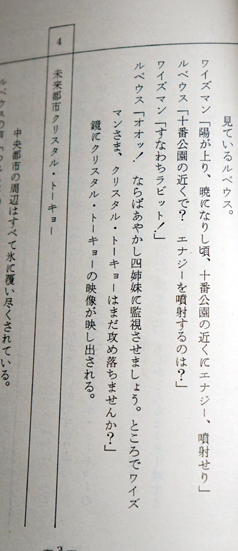 見ているルベウス。
ワイズマン「陽が上り、暁になりし頃、十番公園の近くにエナジー、噴射せり」
ルベウス「十番公園の近くで? エナジーを噴射するのは?」
ワイズマン「すなわちラビット!」
ルベウス「オオッ! ならばあやかし四姉妹に監視させましょう。ところでワイズ
マンさま、クリスタル・トーキョーはまだ攻め落ちませんか?」
鏡にクリスタル・トーキョーの映像が映し出される。
4
未来都市クリスタル・トーキョー
中央都市の周辺はすべて氷に覆い尽くされている。